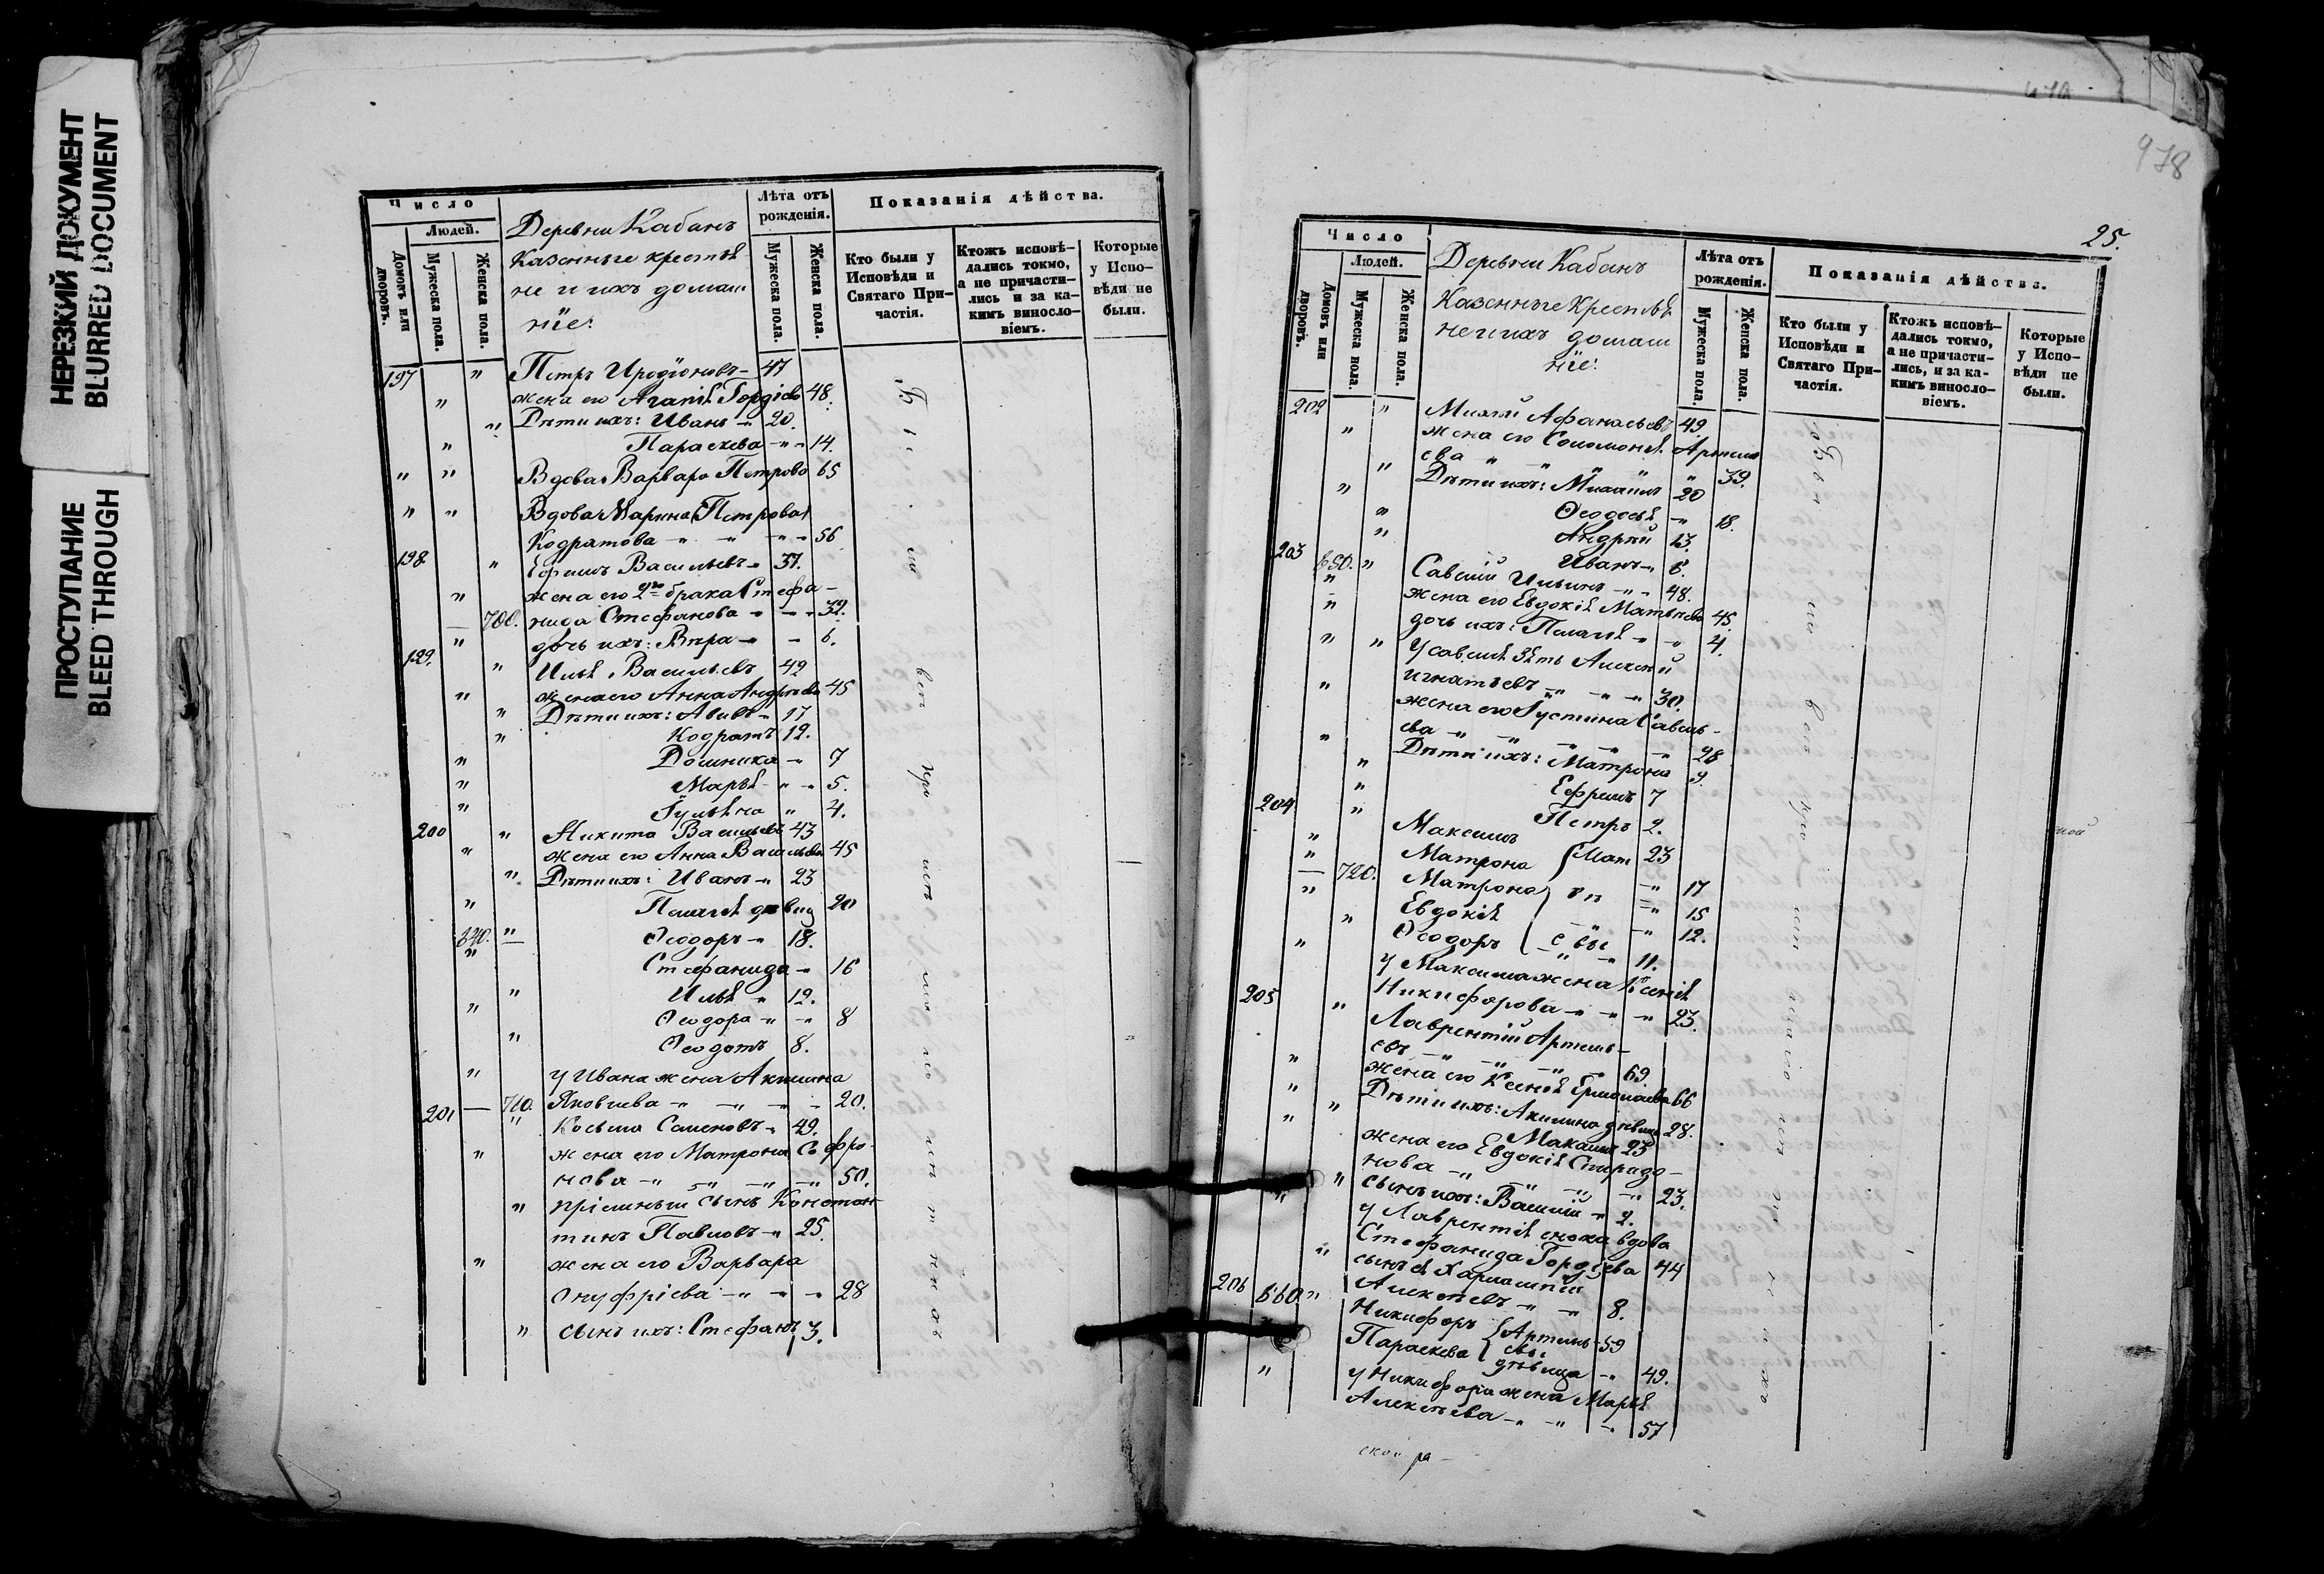 НЕРЕЗКИЙ ДОКУМЕНТ
BLURRED DOCUMENT
ПРОСТУПАНИЕ
BLEED THROUGH
Число
Людей.
Домовъ или дворовъ.
Мужеска пола.
Женска пола.
Деревни Кабанъ
Казенные крестья
не и ихъ домаш
ніе:
Лѣта отъ рожденія.
Мужеска пола.
Женска пола.
Показанія дѣйства.
Кто были у Исповѣди и Святаго При-частія.
Ктожъ исповѣ-дались токмо, а не причасти-лись и за ка-кимъ винословіемъ.
Которые у Испо-вѣди не были.
197 " Петръ Иродіоновъ - 47
" жена его Агапія Гордіева 48.
" Дѣти ихъ: Иванъ - 20.
" Параскева - " - 14.
" " Вдова Варвара Петрова 65
" " Вдова Марина Петрова
Кодратова - " - " - " - 56
198. " Ефимъ Васильевъ - 37.
" жена его 2го брака Стефа-
700. нида Стефанова - " - " - 32.
" дочь ихъ: Вѣра - " - 6.
199. " Илья Васильевъ 42
" жена его Анна Андреева 45
" Дѣти ихъ: Авивъ - 17
" Кодратъ 12.
" Домника - " 7
" Марья - " - 5.
" Іульяна " 4.
200 " Никита Васильевъ 43
" жена его Анна Васильева 45
" Дѣти ихъ: Иванъ - " 23
" Пелагея дѣвица 20
640. " Ѳеодоръ - " 18.
" Стефанида - 16
" Илья - " 12.
" Ѳеодора - " - " 8
" Ѳеодотъ 8.
" у Ивана жена Акилина
710. Яковлева - " - " - " - 20.
201 " Косьма Семеновъ - " 49.
" жена его Матрона Софро-
нова - " - " - " - " 50.
" пріемный сынъ Констан-
тинъ Павловъ - " 25.
" жена его Варвара
Онуфріева - " - " - " 28
" сынъ ихъ: Стефанъ 3.
478
25.
Число
Людей.
Домовъ или дворовъ.
Мужеска пола.
Женска пола.
Деревни Кабанъ
Казенные Крестья
не и ихъ домаш
ніе:
Лѣта отъ рожденія.
Мужеска пола.
Женска пола.
Показанія дѣйства.
Кто были у Исповѣди и Святаго При-частія.
Ктожъ исповѣ-дались токмо, а не причасти-лись, и за ка-кимъ винословіемъ.
Которые у Испо-вѣди не были.
202 " Афанасьевъ 49
" жена его Соломонея Артемь
ева " " " " 39.
" Дѣти ихъ: Михаилъ 20
" Ѳеодосья - " 18.
" Андрей 13.
" Иванъ - " 6.
203 650. " Савелий Ильинъ - " - 48.
" жена его Евдокія Матвѣева 45.
" дочь ихъ: Пелагея - " - " 4.
" " У Савелья зять Алексѣй
Игнатьевъ - " - " - " 30.
" жена его Іустина Савель-
ева - " - " - " - " 28
" Дѣти ихъ: Матрона 9.
" Ефремъ 7
" Петръ 2.
204 " Максимъ 23
" Матрона - " 17
720. Матрона = " 15
" Евдокія - " 12.
" Ѳеодоръ - " 11.
" у Максима жена Ксенія
Никифорова - " - " - " 23.
205 " Лаврентій Артемь-
евъ - " - " - " 69.
" жена его Ксенія Ермолаева 66
" Дѣти ихъ: Акилина дѣвица 28.
" 23
" жена его Евдокія Спиридо-
нова - " - " - " - " 23.
" сынъ ихъ: Василій - " 2.
" у Лаврентья сноха вдова
Стефанида Гордѣева 44
" сынъ ея Харлампій
Алексѣевъ - " - " 8.
206 660. " Никифоръ Артемь- 59
Параскева евы дѣвица - " 49.
" у Никифора жена Марья
Алексѣева - " - " - " 57